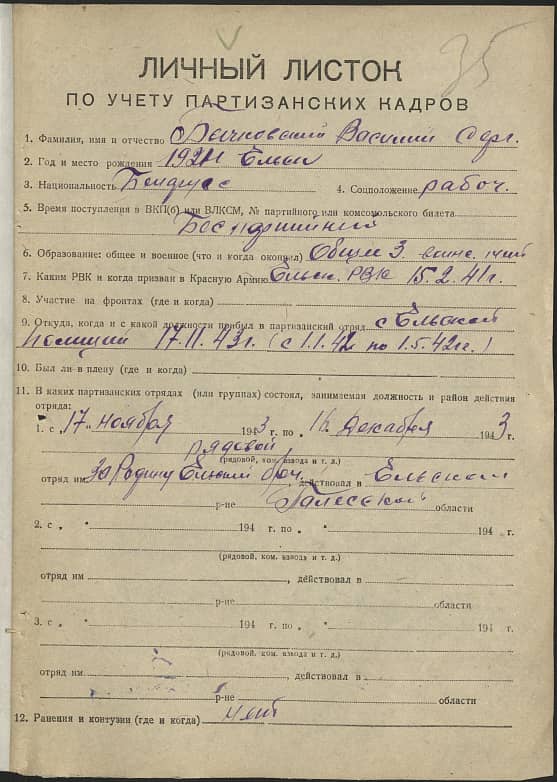 35
ЛИЧНЫЙ ЛИСТОК
ПО УЧЕТУ ПАРТИЗАНСКИХ КАДРОВ
1. Фамилия, имя и отчество Василий
2. Год и место рождения Ельск
3. Национальность Белорусс 4. Соцположение рабоч.
5. Время поступления в ВКП(б) или ВЛКСМ, № партийного или комсомольского билета
Беспартийный
6. Образование: общее и военное (что и когда окончил) Общее 3. воен. нет
7. Каким РВК и когда призван в Красную Армию Ельск. РВК 15.2.41г.
8. Участие на фронтах (где и когда)
9. Откуда, когда и с какой должности прибыл в партизанский отряд с Ельской
полиции 17.11.43г. (с 1.1.42 по 1.5.42г.)
10. Был ли в плену (где и когда)
11. В каких партизанских отрядах (или группах) состоял, занимаемая должность и район действия
отряда:
1. с „17" ноября 1943 г. по „ Декабря 1943 г.
рядовой
(рядовой, ком. взвода и т. д.)
отряд им За Родину Ельской бриг., действовал в Ельском
р-не Полесской области
2. с „ " 194 г. по „ " 194 г.
(рядовой, ком. взвода и т. д.)
отряд им , действовал в
р-не области
3. с „ " 194 г. по „ " 194 г.
(рядовой, ком. взвода и т. д.)
отряд им , действовал в
р-не области
12. Ранения и контузии (где и когда) нет